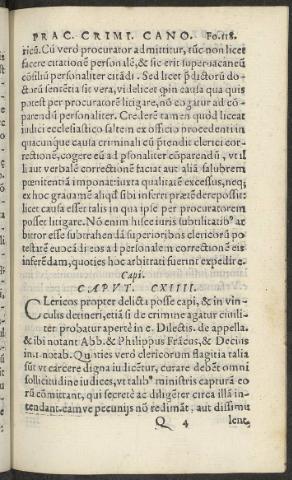 PRAC. CRIMI. CANO. Fo.118.
ricũ. Cũ verò procurator admittitur, tũc non licet
facere citationẽ personalẽ, & sic erit superuacaneũ
cõsiliũ personaliter citãdi. Sed licet p̃dictorũ do-
ctorũ sentẽtia sit vera, videlicet q̃ in causa qua quis
potest per procuratorẽ litigare, nõ cogatur ad cõ-
parendũ personaliter. Crederẽ tamen quòd liceat
iudici ecclesiastico saltem ex officio procedenti in
quacunque causa criminali cũ p̃tendit clerici cor-
rectionẽ, cogere eũ ad psonaliter cõparendũ, vt il
li aut verbalẽ correctionẽ faciat aut aliã salubrem
pœnitentiã imponat: iuxta qualitatẽ excessus, neq;
ex hoc grauamẽ aliqđ sibi inferri prætẽdere possit:
licet causa esset talis in qua ipse per procuratorem
posset litigare. Nõ enim hisce iuris subtilitatibꝰ ar
bitror esse subtrahendã superioribus clericorũ po
testatẽ euocãdi eos ad personalem correctionẽ eis
inferẽdam, quoties hoc arbitrati fuerint expedire.
Capi.
CAPVT. CXIIII.
CLericos propter delicta posse capi, & in vin-
culis detineri, etiã si de crimine agatur ciuili-
ter probatur apertè in c. Dilectis. de appella.
& ibi notant Abb. & Philippus Frãcus, & Decius
in.1. notab. Quoties verò clericorum flagitia talia
sũt vt carcere digna iudicẽtur, curare debẽt omni
sollicitudine iudices, vt talibꝰ ministris capturã eo
rũ cõmittant, qui secretè ac diligẽter circa illã in-
tendant. eamve pecunijs nõ redimãt, aut dissimu
Q 4 lent,